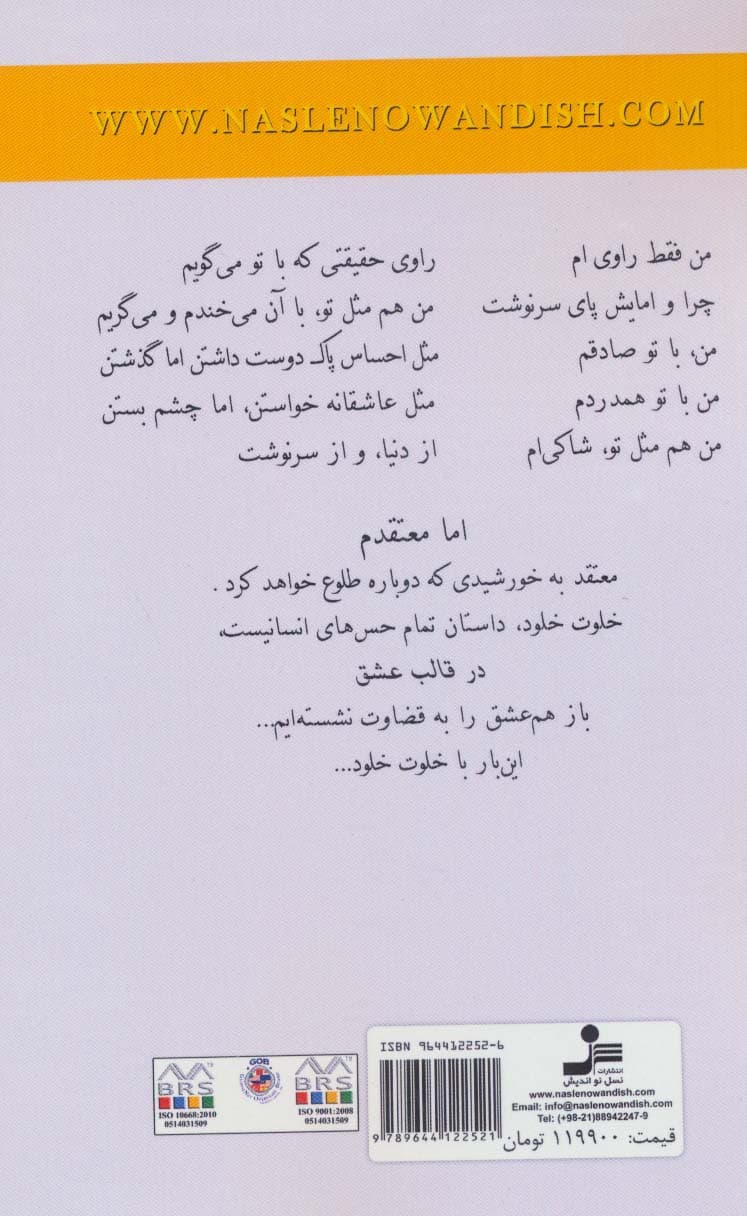 WWW.NASLENOWANDISH.COM
من فقط راوی ام راوی حقیقتی که با تو می‌گویم
چرا و امایش پای سرنوشت من هم مثل تو، با آن می‌خندم و می‌گریم
من، با تو صادقم مثل احساس پاک دوست داشتن اما گذشتن
من با تو همدردم مثل عاشقانه خواستن، اما چشم بستن
من هم مثل تو، شاکی‌ام از دنیا، و از سرنوشت
اما معتقدم
معتقد به خورشیدی که دوباره طلوع خواهد کرد .
خلوت خلود، داستان تمام حس‌های انسانیست،
در قالب عشق
باز هم‌عشق را به قضاوت نشسته‌ایم...
این‌بار با خلوت خلود...
ISBN 964412252-6
9 789644 122521
انتشارات
نسل نو اندیش
www.naslenowandish.com
Email: info@naslenowandish.com
Tel: (+98-21)88942247-9
قیمت: ۱۱۹۹۰۰ تومان
BRS
ISO 10668:2010
0514031509
GOB
BRS
ISO 9001:2008
0514031509